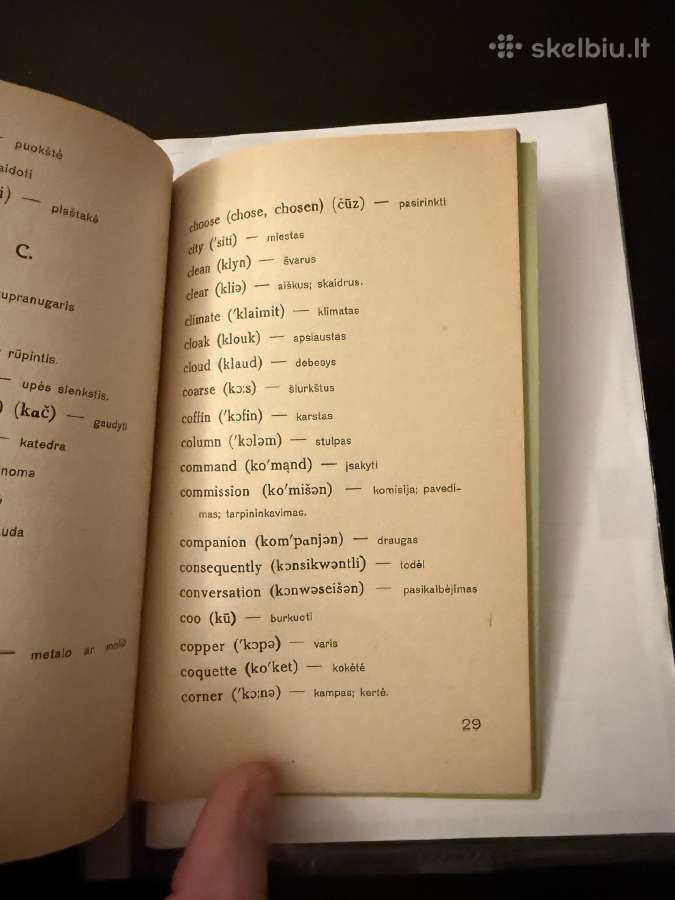 skelbiu.lt
puokštė
plaštakė
C.
rūpintis.
— upės slenkstis.
(kač) — gaudyti
— katedra
— metalo ar
choose (chose, chosen) (čūz) — pasirinkti
city ('siti) — miestas
clean (klyn) — švarus
clear (kliə) — aiškus; skaidrus.
climate ('klaimit) — klimatas
cloak (klouk) — apsiaustas
cloud (klaud) — debesys
coarse (kɔ:s) — šiurkštus
coffin ('kɔfin) — karstas
column ('kɔləm) — stulpas
command (ko'mąnd) — įsakyti
commission (ko'mišən) — komisija; pavedi-
mas; tarpininkavimas.
companion (kom'panjən) — draugas
consequently (kɔnsikwəntli) — todėl
conversation (kɔnwəseišən) — pasikalbėjimas
coo (kū) — burkuoti
copper ('kɔpə) — varis
coquette (ko'ket) — kokėtė
corner ('kɔ:nə) — kampas; kertė.
29